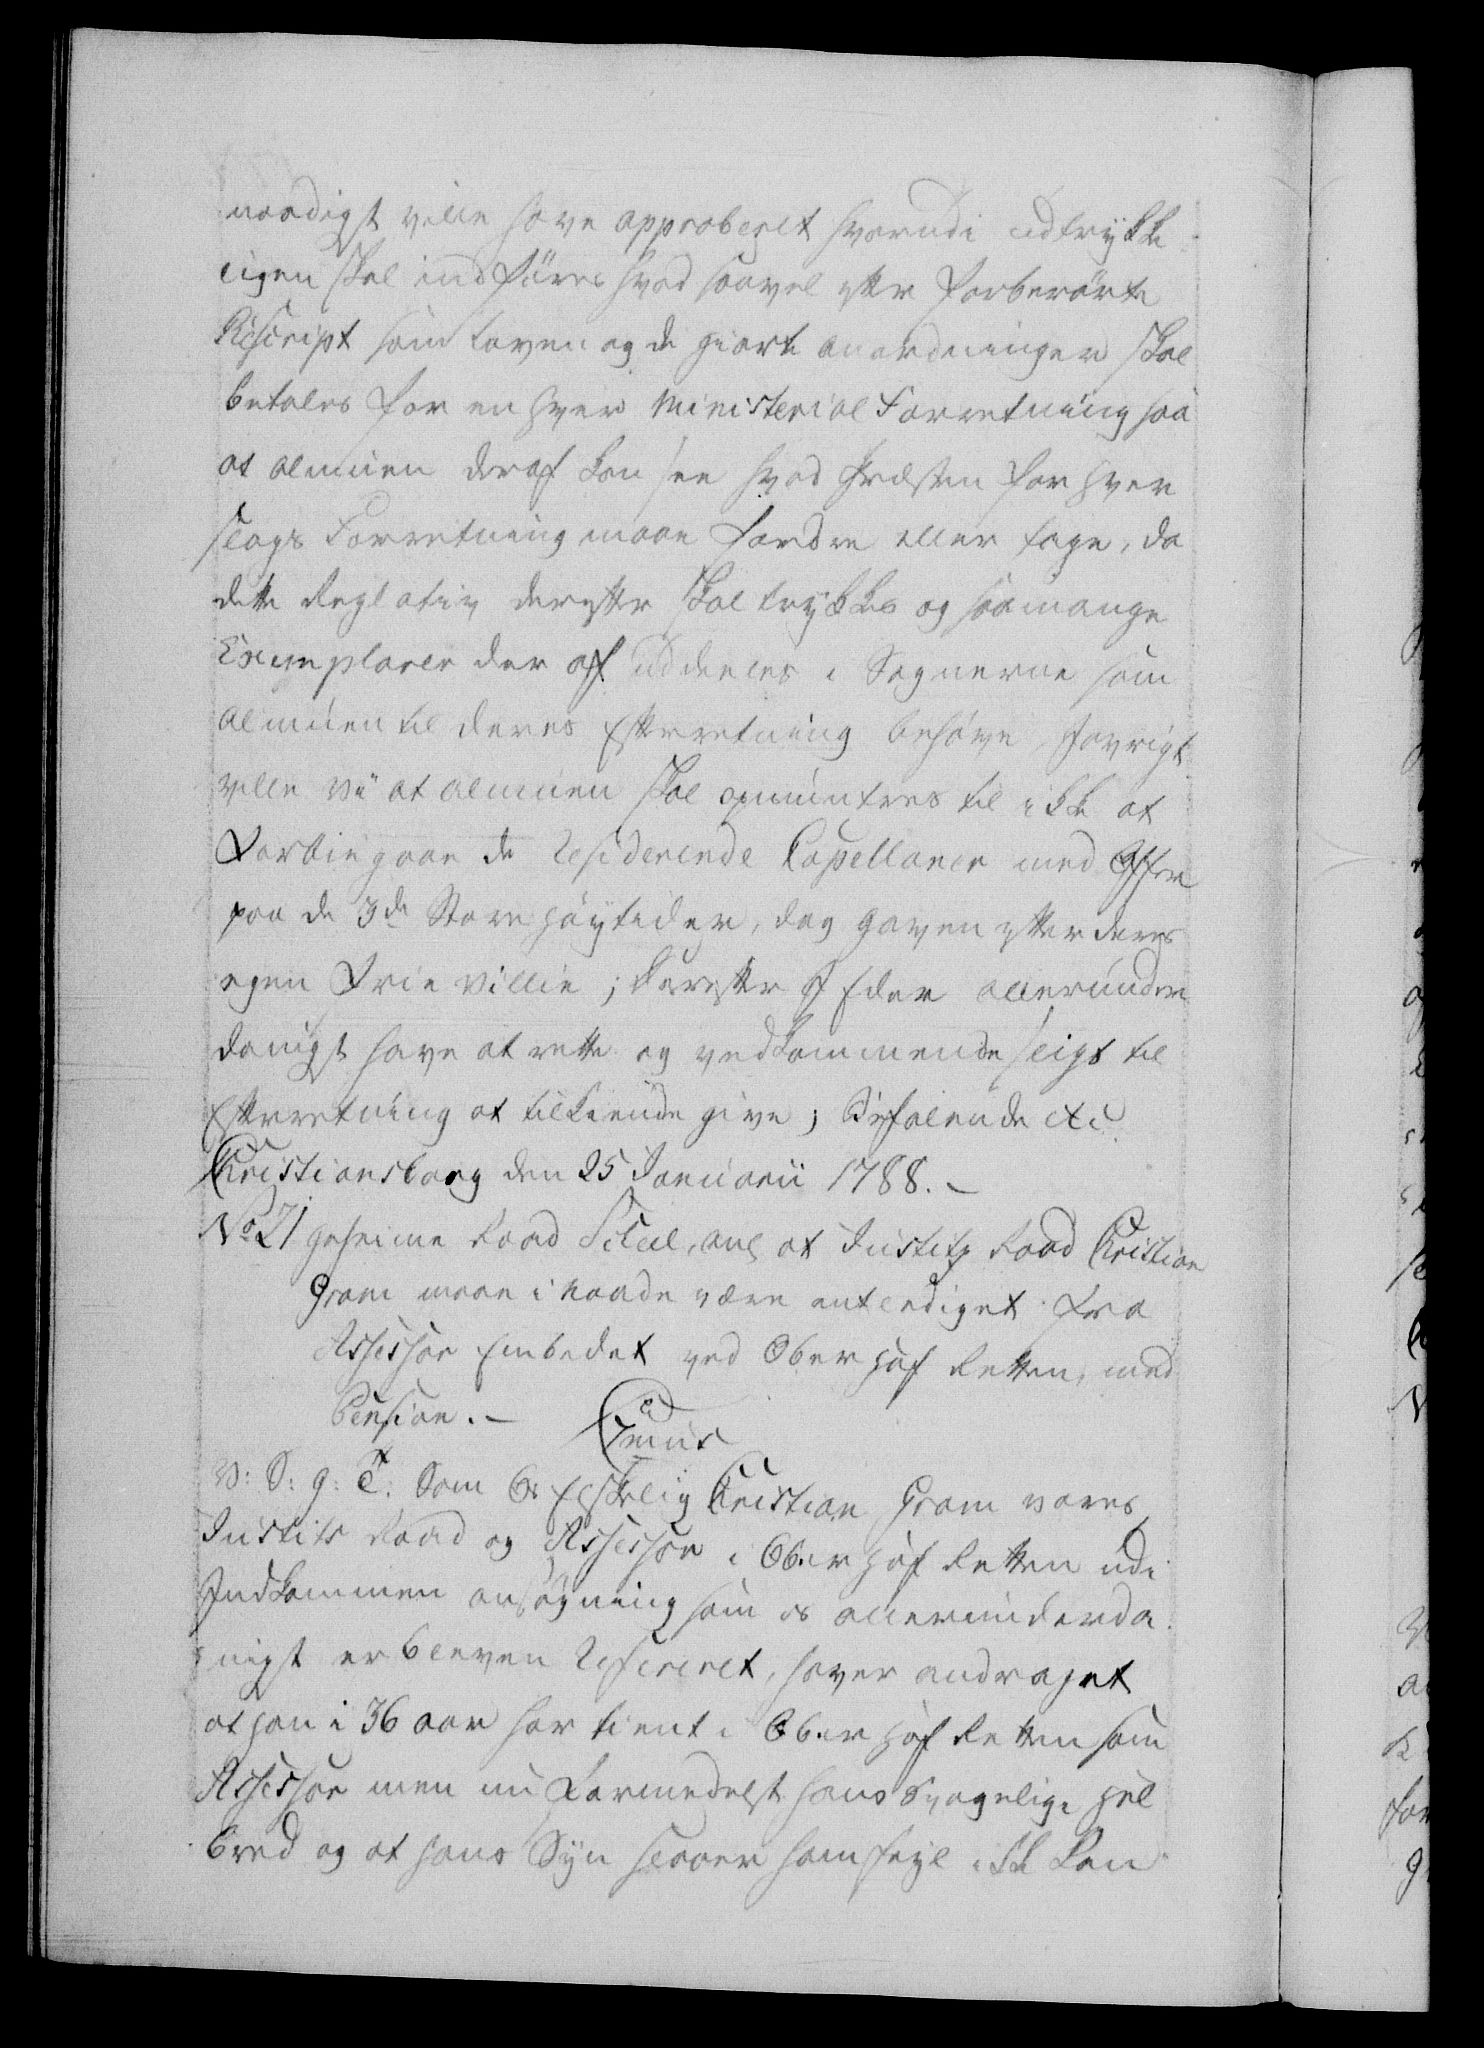 naadigst ville have approberet hvorudi udtrykke
ligen skal indføres hvad saavel efter forberørte
Rescript som loven og de giorte anordninger skal
betales for en hver Ministerial Forretning saa
at almuen deraf kan see hvad Præsten for hver
slags Forretning maae fordre eller tage, da
dette Reglativ derefter skal trykkes og saamange
Exemplarer der af uddeeles i Sognerne som
almuen til deres Efterretning behøve, Jøvrigt
ville vii at almuen skal opmuntres til ikke at
Forbiegaae de Residerende Capellaner med Offer
paa de 3de Store Høytider, dog gaven efter deres
egen Frie Villie; Derefter I Eder allerunder
danigst have at rette og vedkommende sligt til
Efterretning at tilkiende give; Befalende etc.
Christiansborg den 25 Januarii 1788. –
No 21 geheime Raad Scheel, anl at Justitz Raad Christian
Gram maae i Naade være entlediget fra
Assessor Embedet ved Ober Hof Retten, med
Pension. –
V: S: G: T: Som Os Elskelig Christian Gram vores
Justits Raad og Assessor i Ober Hof Retten udi
Indkommen ansøgning som os allerunderda
nigst er bleven Refereret, haver andraget
at han i 36 aar har tient i Ober Hof Retten som
Assessor men nu Formedelst hans Svagelige Hel
bred og at hans Syn slaaer ham feyl ikke kan